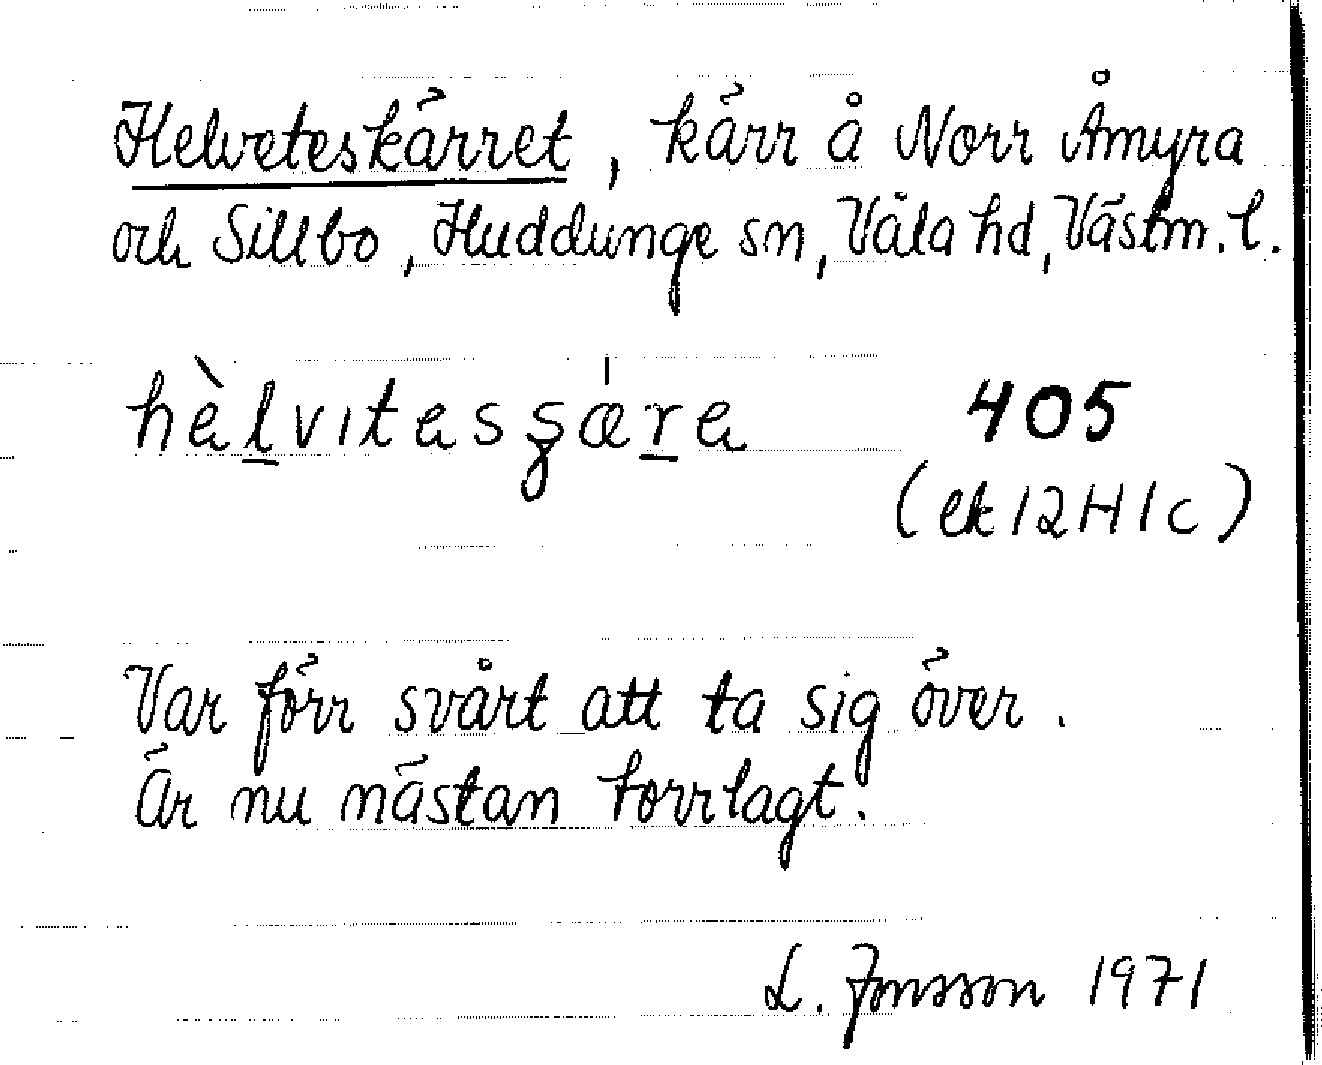 Helveteskärret, kärr å Norr Åmyra
och Sillbo, Huddunge sn, Våla hd, Västm. l.
hὲlvıtesʂǽre 405
(ek 12H1c)
Var förr svårt att ta sig över.
Är nu nästan torrlagt.
L. Jonsson 1971